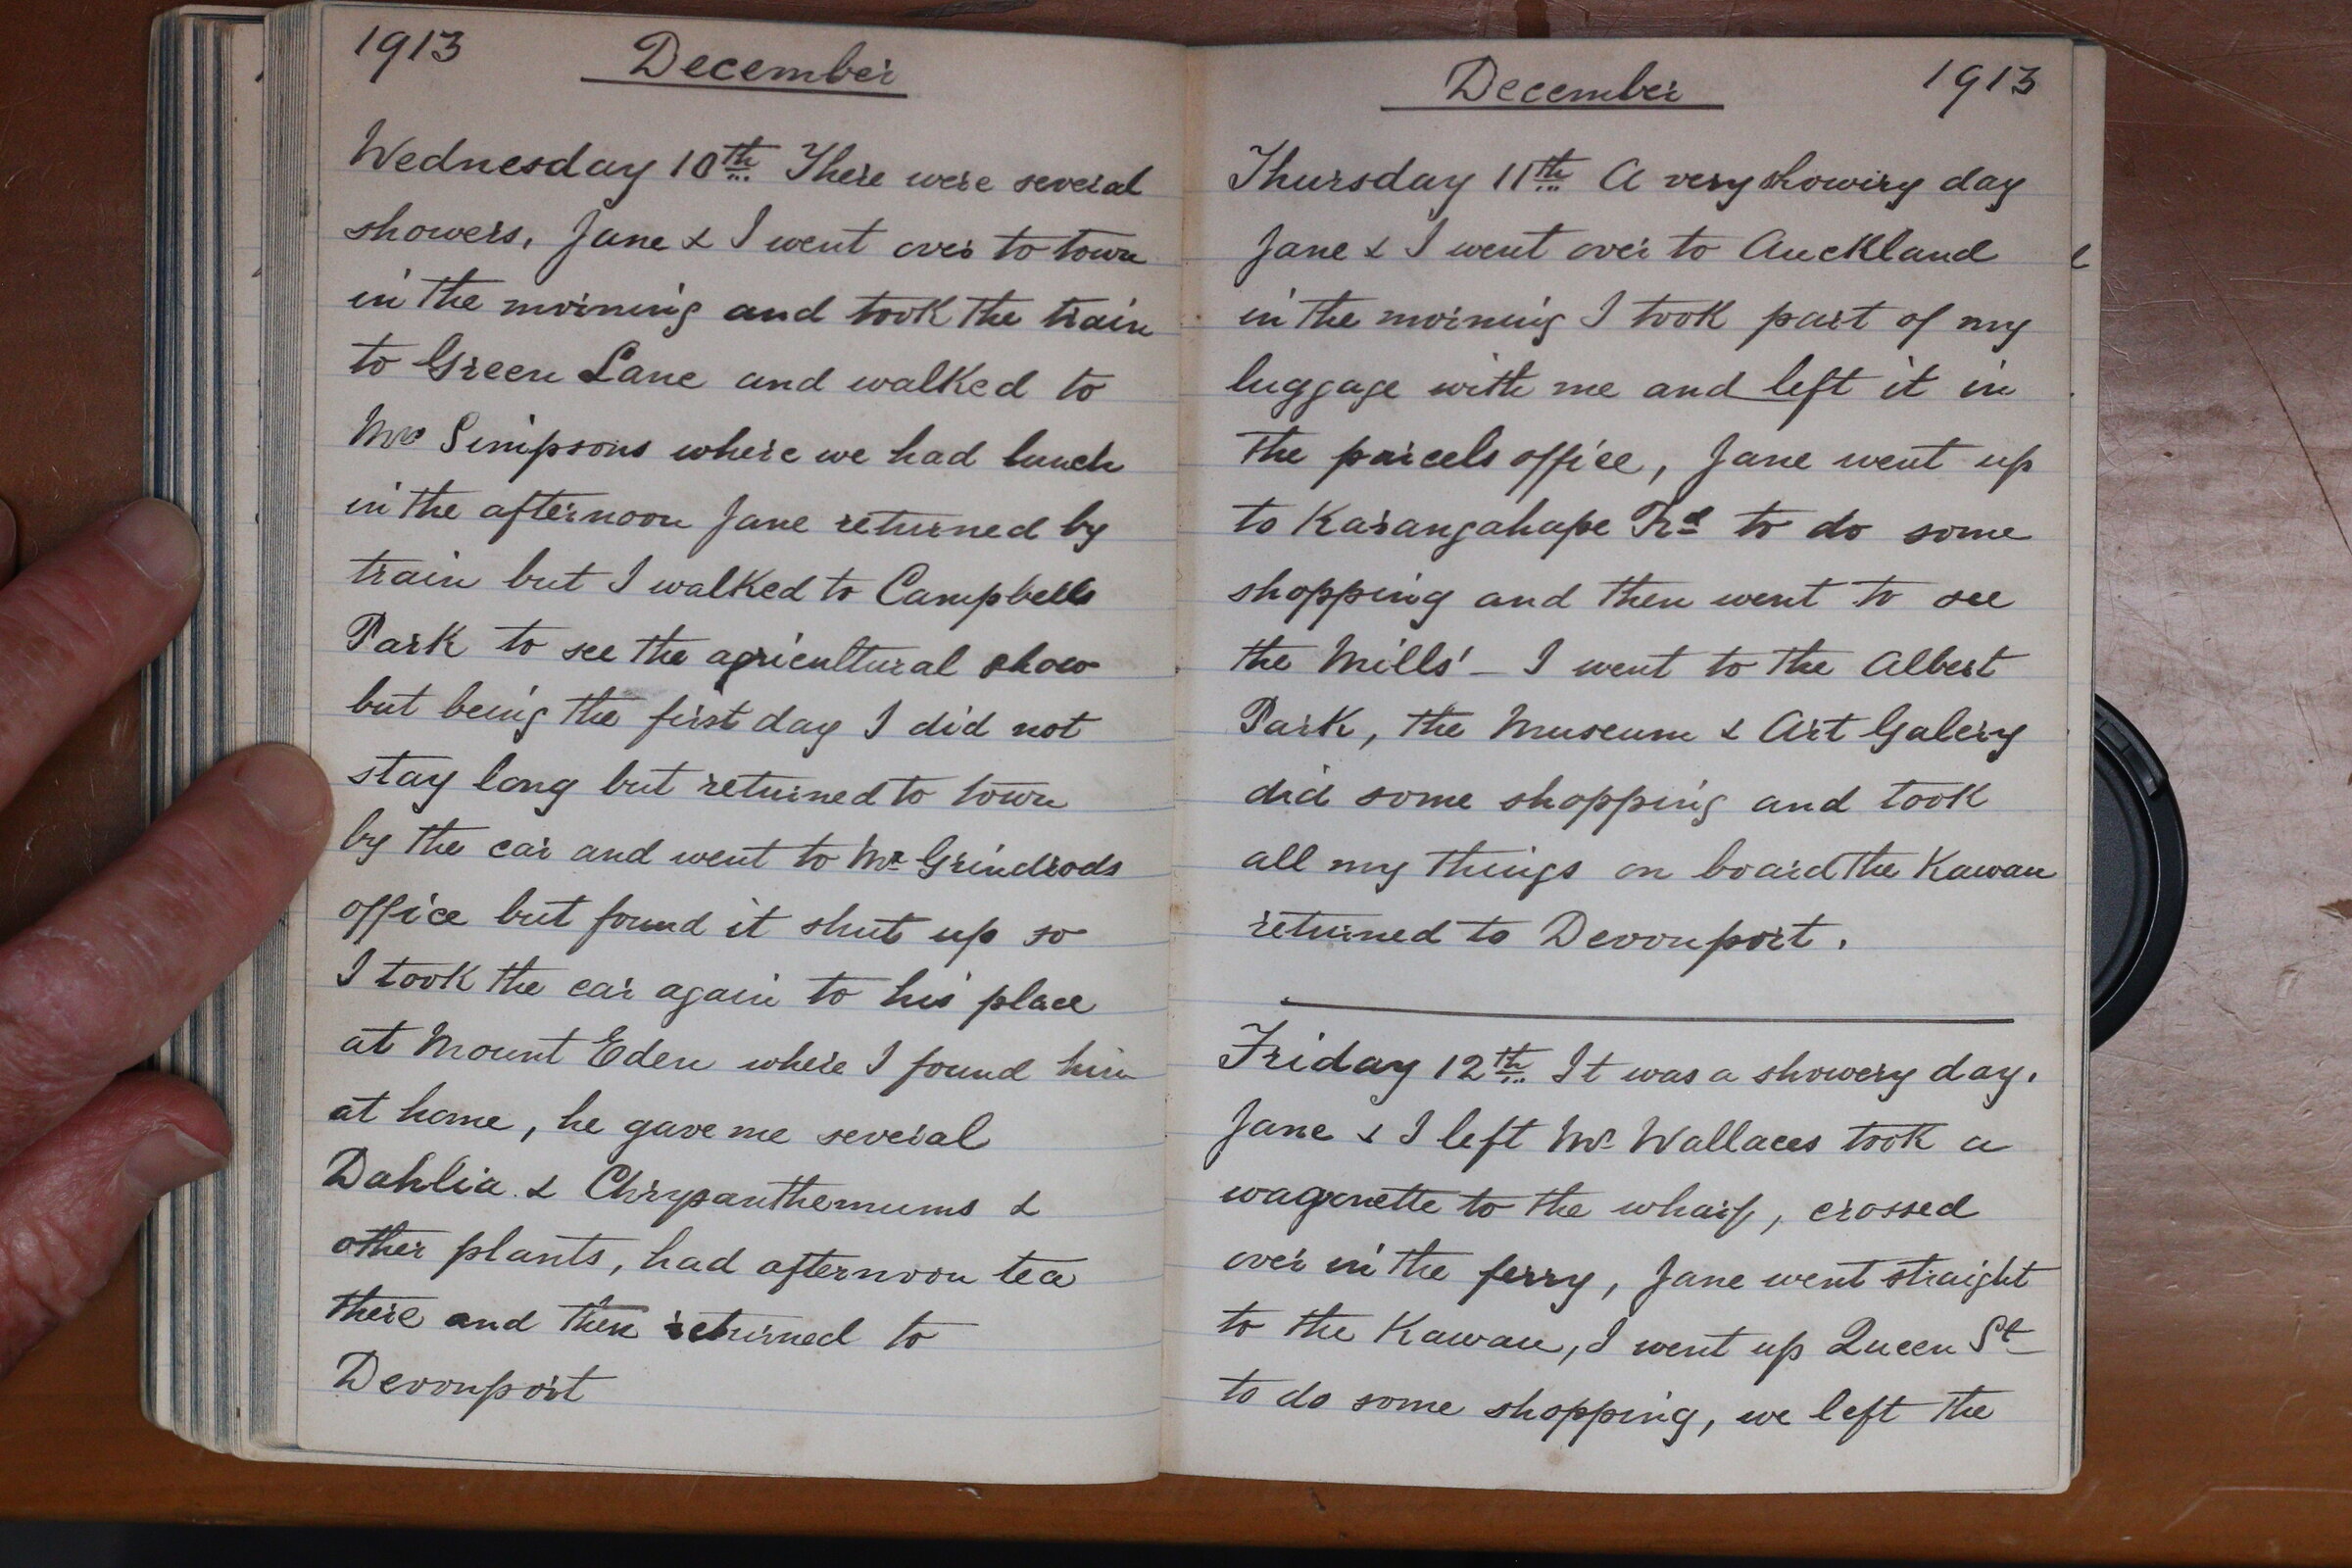 1913 December
Wednesday 10th There were several
showers, Jane & I went over to town
in the morning and took the train
to Green Lane and walked to
Mrs Simpsons where we had lunch
in the afternoon Jane returned by
train but I walked to Campbells
Park to see the agricultural show
but being the first day I did not
stay long but returned to town
by the car and went to Mr Grindrods
office but found it shut up so
I took the car again to his place
at Mount Eden where I found him
at home, he gave me several
Dahlia & Chrysanthemums &
other plants, had afternoon tea
there and then returned to
Devonport
December 1913
Thursday 11th A very showery day
Jane & I went over to Auckland
in the morning I took part of my
luggage with me and left it in
the parcels office, Jane went up
to Karangahape Rd to do some
shopping and then went to see
the Mills' - I went to the Albert
Park, the Museum & Art Galery
did some shopping and took
all my things on board the Kawau
returned to Devonport.
Friday 12th It was a showery day.
Jane & I left Wallaces took a
wagonette to the wharf, crossed
over in the ferry, Jane went straight
to the Kawau, I went up Queen St
to do some shopping, we left the